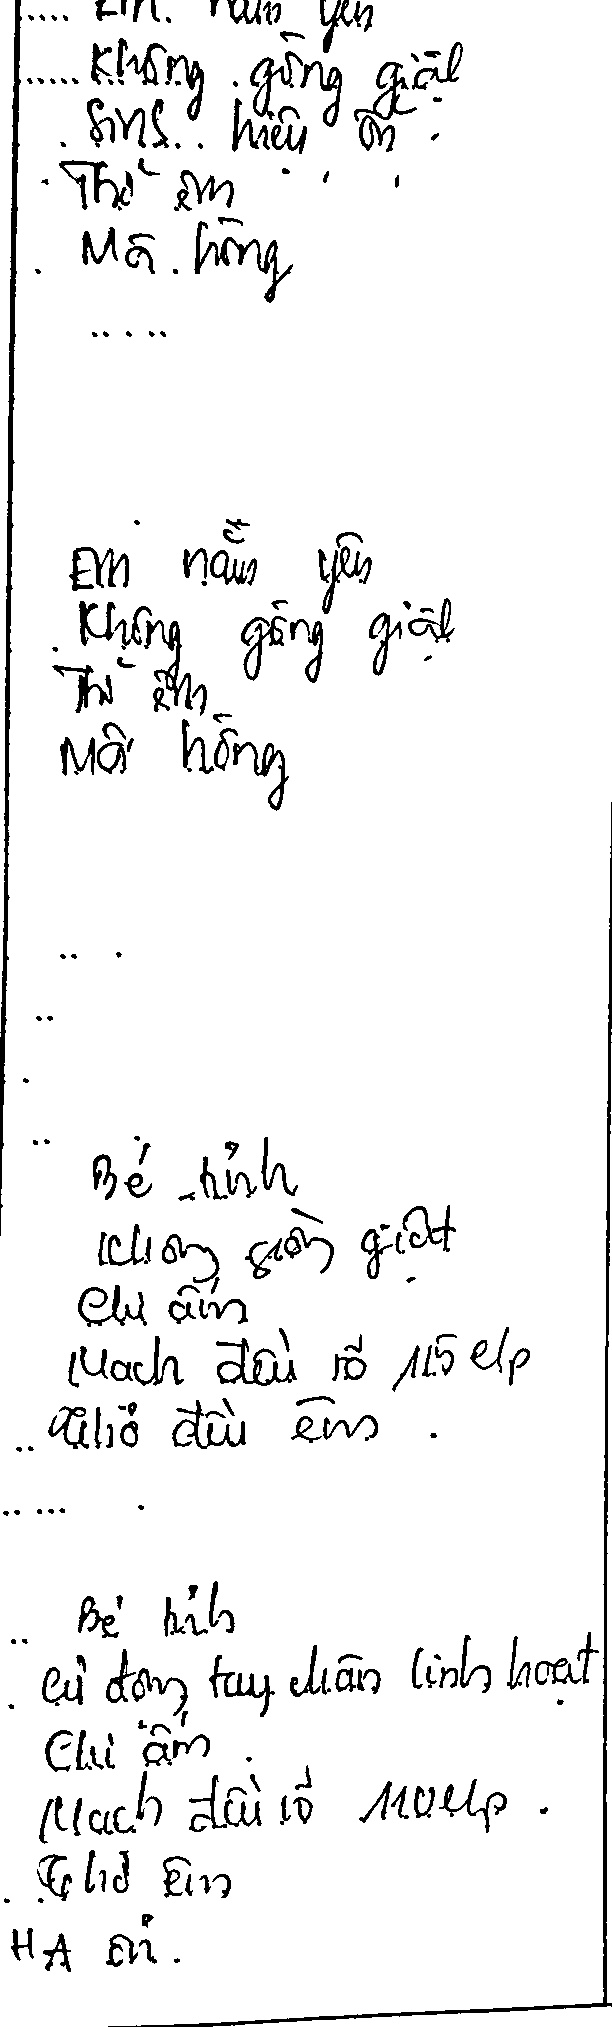 Em nằm yên
Không gồng giật
Sinh hiệu ổn
Thở êm
Môi hồng
Em nằm yên
Không gồng giật
Thở êm
Môi hồng
Bé tỉnh
Không gồng giật
Chi ấm
Mạch đều rõ 115 l/p
Thở đều êm.
Bé tỉnh
Cử động tay chân linh hoạt
Chi ấm.
Mạch đều rõ 110 l/p.
Thở êm
HA ổn.